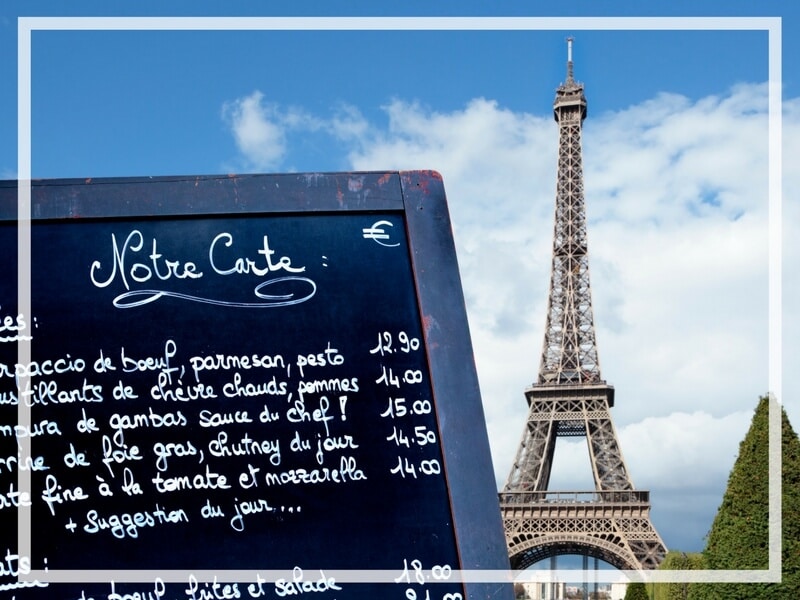 Notre Carte : €
ées :
rpaccio de boeuf, parmesan, pesto 12.90
ustillants de chèvre chauds, pommes 14.00
mpura de gambas sauce du chef ! 15.00
rrine de foie gras, chutney du jour 14.50
rte fine à la tomate et mozzarella 14.00
+ Suggestion du jour ...
ats :
de boeuf, frites et salade 18.00